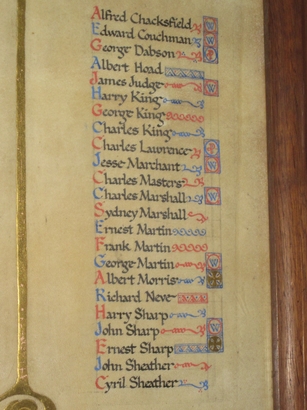 Alfred Chacksfield W
Edward Couchman W
George Dabson
Albert Hoad
James Judge W
Harry King
George King
Charles King
Charles Lawrence
Jesse Marchant W
Charles Masters
Charles Marshall W
Sydney Marshall
Ernest Martin
Frank Martin
George Martin W
Albert Morris
Richard Neve
Harry Sharp
John Sharp W
Ernest Sharp
John Sheather
Cyril Sheather